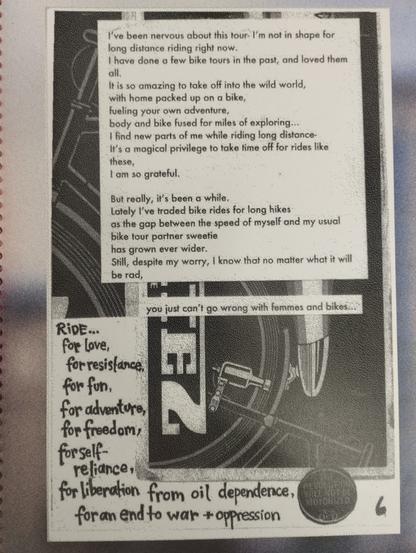 I've been nervous about this tour- I'm not in shape for
long distance riding right now.
I have done a few bike tours in the past, and loved them
all.
It is so amazing to take off into the wild world,
with home packed up on a bike,
fueling your own adventure,
body and bike fused for miles of exploring...
I find new parts of me while riding long distance-
It's a magical privilege to take time off for rides like
these,
I am so grateful.
But really, it's been a while.
Lately I've traded bike rides for long hikes
as the gap between the speed of myself and my usual
bike tour partner sweetie
has grown ever wider.
Still, despite my worry, I know that no matter what it will
be rad,
you just can't go wrong with femmes and bikes...
RIDE...
for love,
for resistance,
for fun,
for adventure,
for freedom,
for self-
reliance,
for liberation from oil dependence,
for an end to war + oppression
6